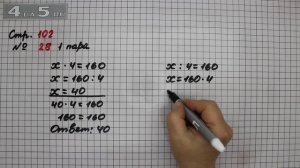 4 на 5.ru
Стр. 102
№ 28 1 пара
x · 4 = 160
x = 160 : 4
x = 40
40 · 4 = 160
160 = 160
Ответ: 40
x : 4 = 160
x = 160 · 4